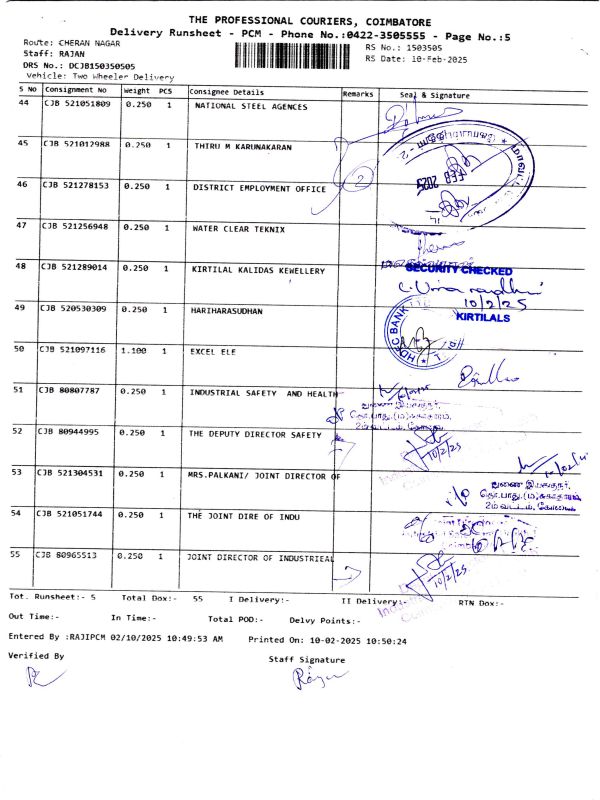 THE PROFESSIONAL COURIERS, COIMBATORE
Delivery Runsheet - PCM - Phone No.:0422-3505555 - Page No.:5
Route: CHERAN NAGAR
RS No.: 1503505
Staff: RAJAN
RS Date: 10-Feb-2025
DRS No.: DCJB150350505
Vehicle: Two Wheeler Delivery
S No Consignment No Weight PCS Consignee Details Remarks Seal & Signature
44 CJB 521051809 0.250 1 NATIONAL STEEL AGENCES
45 CJB 521012988 0.250 1 THIRU M KARUNAKARAN
2
FEB 2025
46 CJB 521278153 0.250 1 DISTRICT EMPLOYMENT OFFICE
47 CJB 521256948 0.250 1 WATER CLEAR TEKNIX
48 CJB 521289014 0.250 1 KIRTILAL KALIDAS KEWELLERY
SECURITY CHECKED
10/2/25
KIRTILALS
49 CJB 520530309 0.250 1 HARIHARASUDHAN
HDFC BANK LTD
50 CJB 521097116 1.100 1 EXCEL ELE
51 CJB 80807787 0.250 1 INDUSTRIAL SAFETY AND HEALTH
துணை இயக்குநர்,
52 CJB 80944995 0.250 1 THE DEPUTY DIRECTOR SAFETY
10/2/25
10/02/
53 CJB 521304531 0.250 1 MRS.PALKANI/ JOINT DIRECTOR OF
துணை இயக்குநர்,
54 CJB 521051744 0.250 1 THE JOINT DIRE OF INDU
55 CJB 80965513 0.250 1 JOINT DIRECTOR OF INDUSTRIEAL
10/2/25
Tot. Runsheet:- 5 Total Dox:- 55 I Delivery:- II Delivery:- RTN Dox:-
Out Time:- In Time:- Total POD:- Delvy Points:-
Entered By :RAJIPCM 02/10/2025 10:49:53 AM Printed On: 10-02-2025 10:50:24
Verified By
Staff Signature